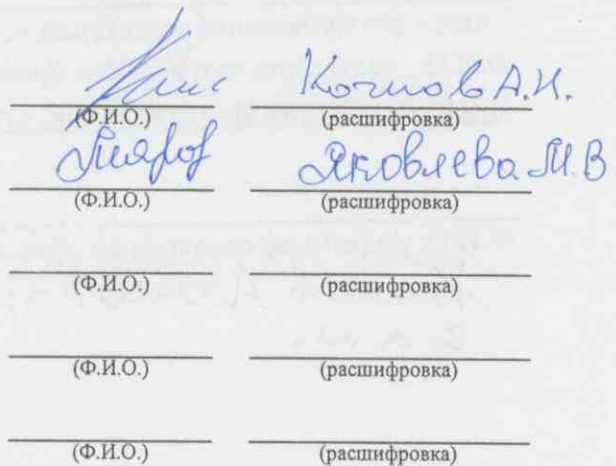 Кочнов А.И.
(Ф.И.О.) (расшифровка)
Яковлева М.В
(Ф.И.О.) (расшифровка)
(Ф.И.О.) (расшифровка)
(Ф.И.О.) (расшифровка)
(Ф.И.О.) (расшифровка)